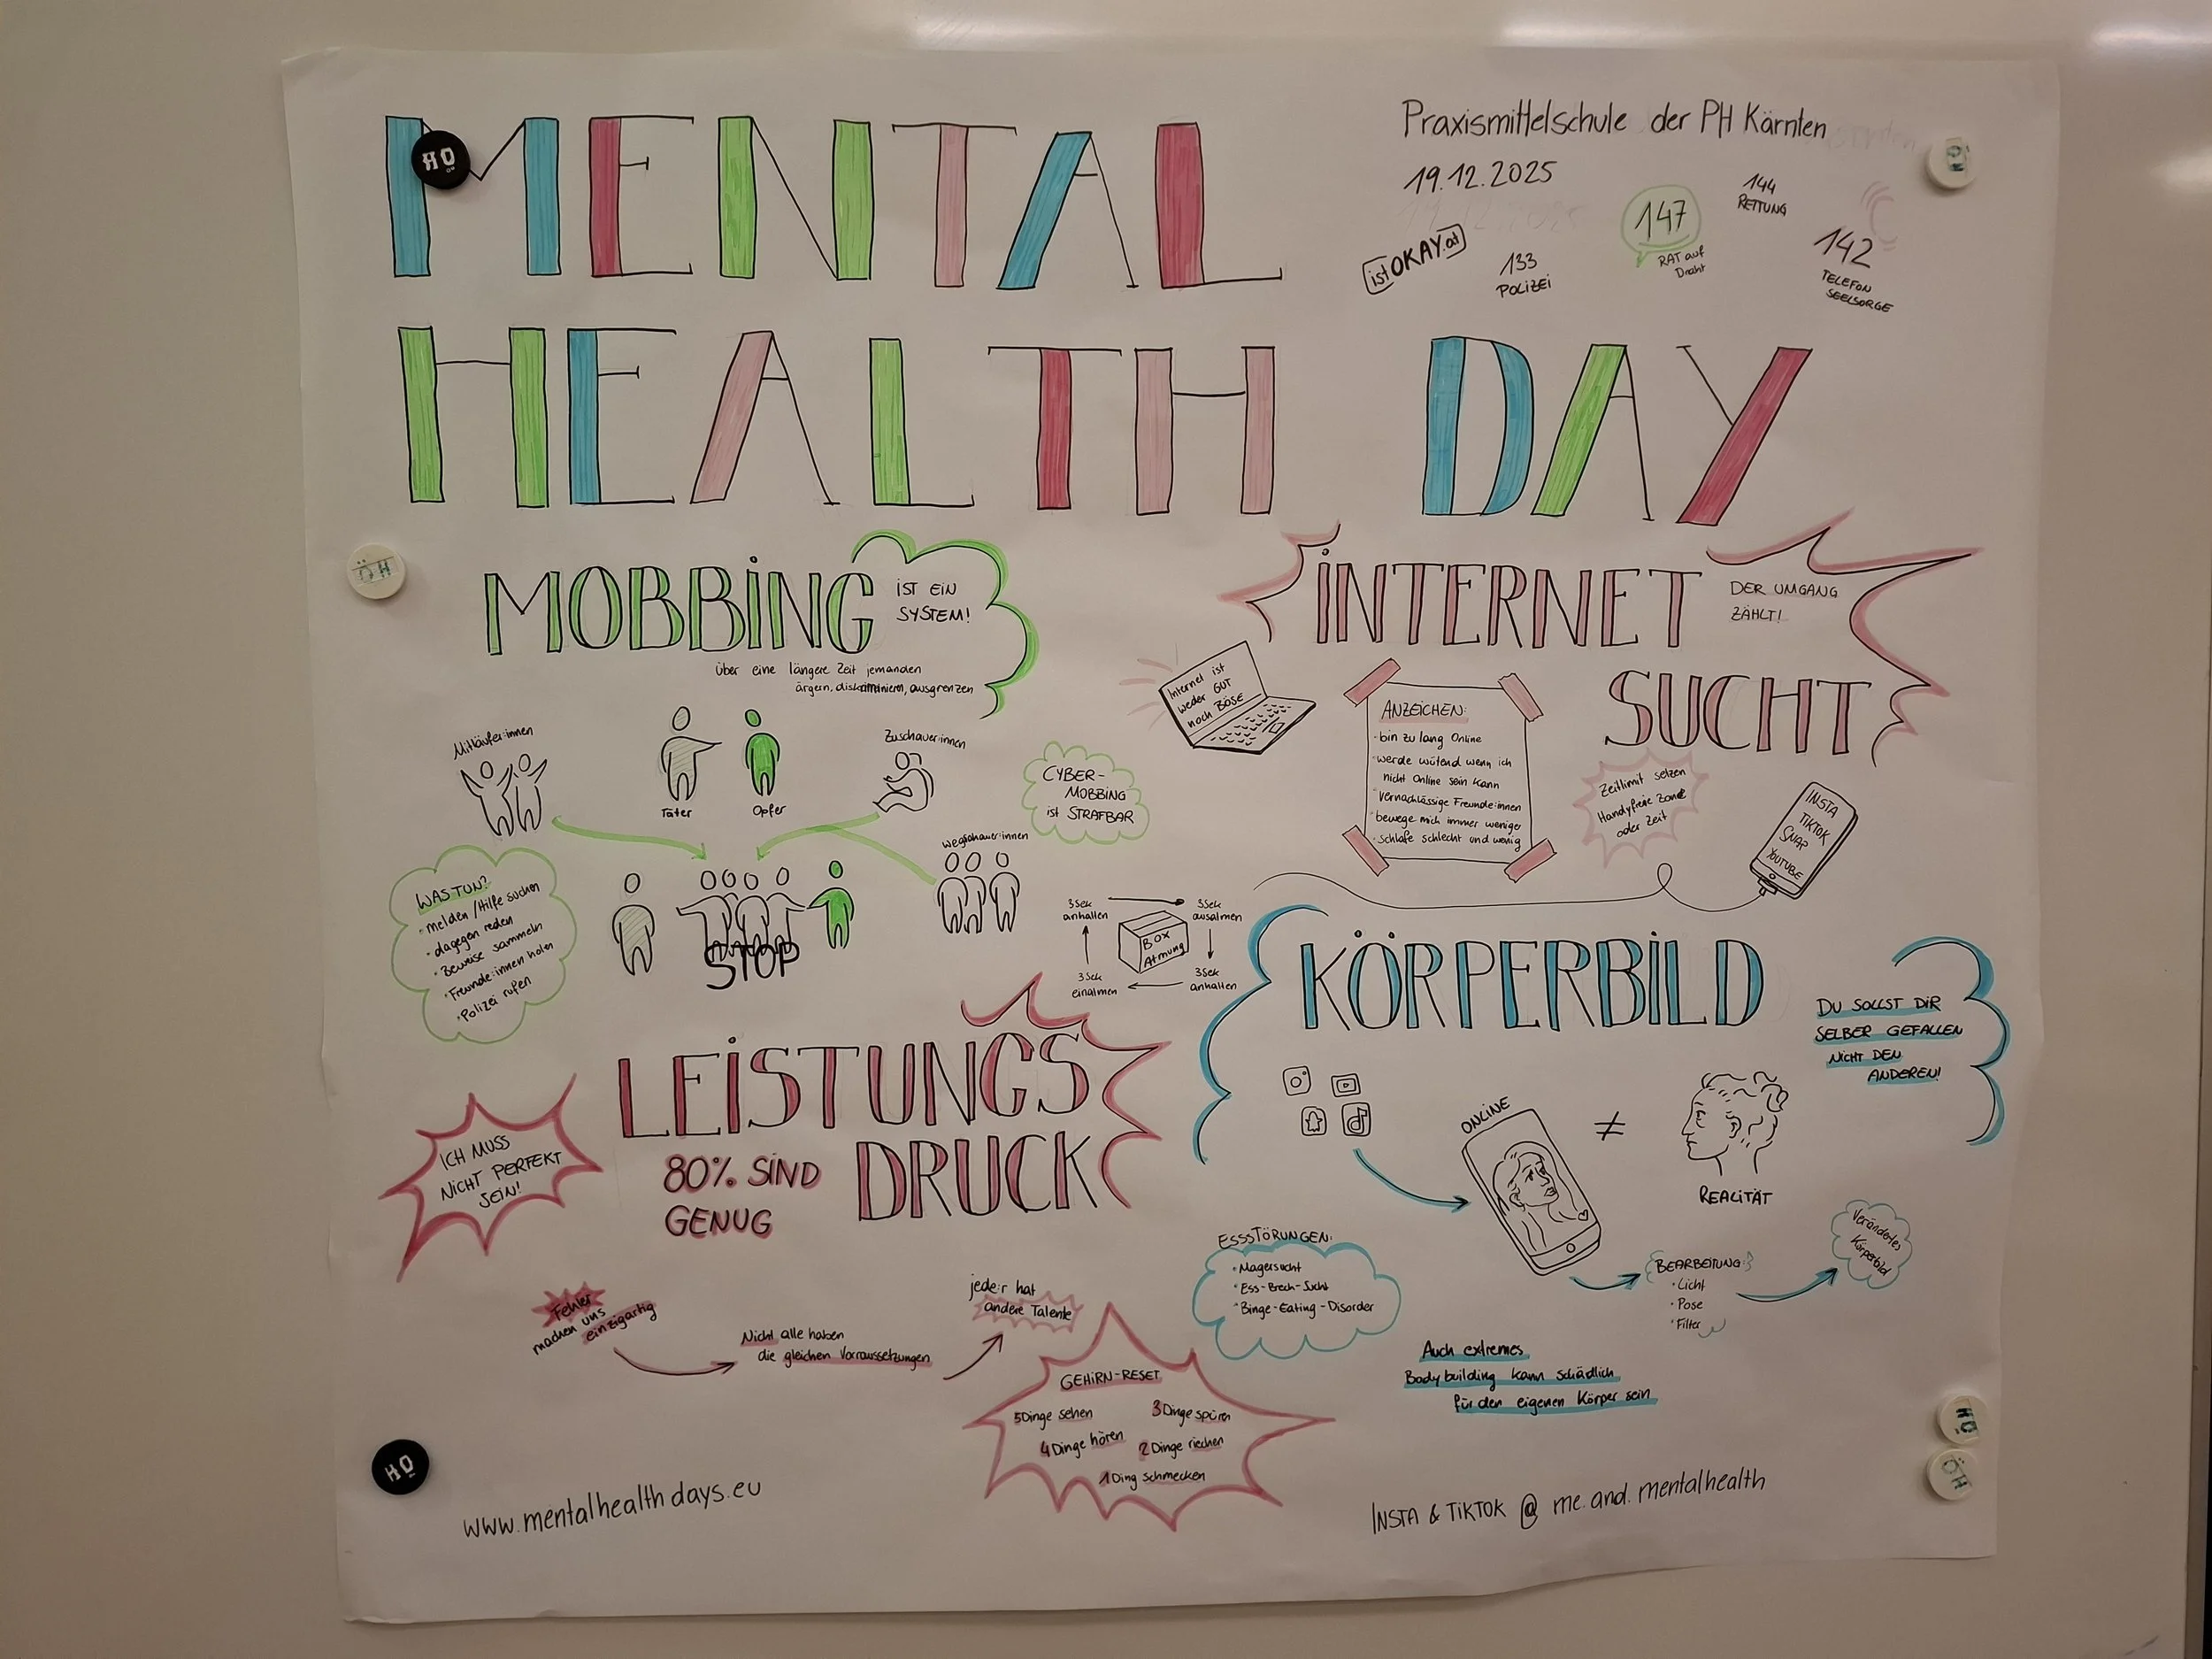 MENTAL
HEALTH DAY
Praxismittelschule der PH Kärnten
19.12.2025
istOKAY.at
133
POLIZEI
147
RAT auf
Draht
144
RETTUNG
142
TELEFON
SEELSORGE
ÖH
MOBBING
IST EIN
SYSTEM!
über eine längere Zeit jemanden
ärgern, diskriminieren, ausgrenzen
Mitläufer:innen
Täter
Opfer
Zuschauer:innen
CYBER-
MOBBING
ist STRAFBAR
wegschauer:innen
STOP
WAS TUN?
• melden / Hilfe suchen
• dagegen reden
• Beweise sammeln
• Freunde:innen holen
• Polizei rufen
3 Sek
anhalten
3 Sek
ausatmen
BOX
Atmung
3 Sek
einatmen
3 Sek
anhalten
INTERNET
SUCHT
DER UMGANG
ZÄHLT!
Internet ist
weder GUT
noch BÖSE
ANZEICHEN:
• bin zu lang Online
• werde wütend wenn ich
nicht Online sein kann
• vernachlässige Freunde:innen
• bewege mich immer weniger
• schlafe schlecht und wenig
Zeitlimit setzen
Handyfreie Zone
oder Zeit
INSTA
TIKTOK
SNAP
YOUTUBE
LEISTUNGS
DRUCK
80% SIND
GENUG
ICH MUSS
NICHT PERFEKT
SEIN!
Fehler
machen uns
einzigartig
Nicht alle haben
die gleichen Vorraussetzungen
jede:r hat
andere Talente
GEHIRN-RESET
5 Dinge sehen
4 Dinge hören
3 Dinge spüren
2 Dinge riechen
1 Ding schmecken
KÖRPERBILD
DU SOLLST DIR
SELBER GEFALLEN
NICHT DEN
ANDEREN!
ONLINE
≠
REALITÄT
BEARBEITUNG:
• Licht
• Pose
• Filter
Verändertes
Körperbild
ESSSTÖRUNGEN:
• Magersucht
• Ess-Brech-Sucht
• Binge-Eating-Disorder
Auch extremes
Bodybuilding kann schädlich
für den eigenen Körper sein
www.mentalhealthdays.eu
INSTA & TIKTOK @ me.and.mentalhealth
ÖH
ÖH
ÖH
ÖH
ÖH